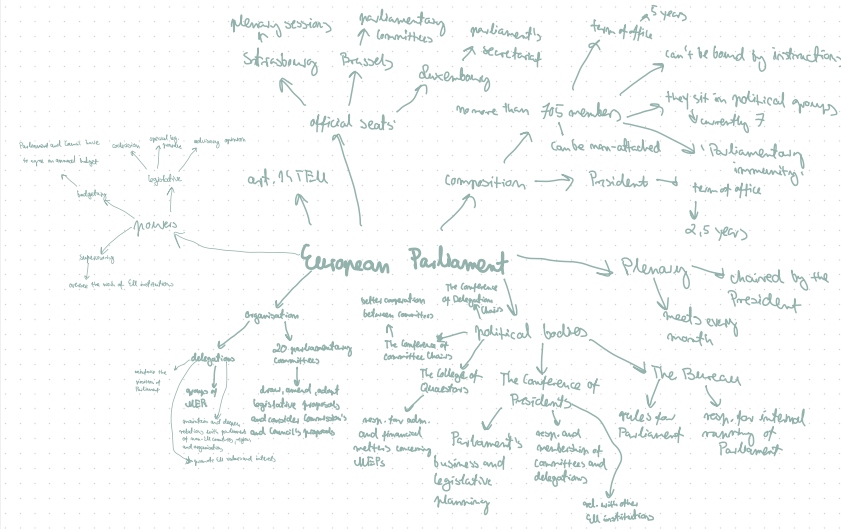 plenary sessions
Strasbourg
parliamentary
committees
Brussels
parliament's
secretariat
Luxembourg
official seats
art. 14 TEU
5 years
term of office
can't be bound by instructions
no more than 705 members
they sit in political groups
currently 7
Parliamentary
immunity
Can be non-attached
Composition
President
term of office
2,5 years
Parliament and Council have
to agree on annual budget
budgetary
codecision
special leg.
legislative
powers
supervising
oversee the work of EU institutions
European Parliament
Plenary
chaired by the
President
meets every
month
organisation
delegations
20 parliamentary
committees
draw, amend, adopt
legislative proposals
and consider Commission's
and Council's proposals
reinforce the
position of
Parliament
groups of
MEP
maintain and deepen
relations with parliament
of non-EU countries, region
and organisations
EU values and interests
political bodies
The Conference
of Delegation
Chairs
better cooperation
between committees
The Conference of
committee Chairs
The College of
Quaestors
resp. for adm.
and financial
matters concerning
MEPs
The Conference of
Presidents
Parliament's
business and
legislative
planning
resp. and
membership of
committees and
delegations
rel. with other
EU institutions
The Bureau
rules for
Parliament
resp. for internal
running of
Parliament